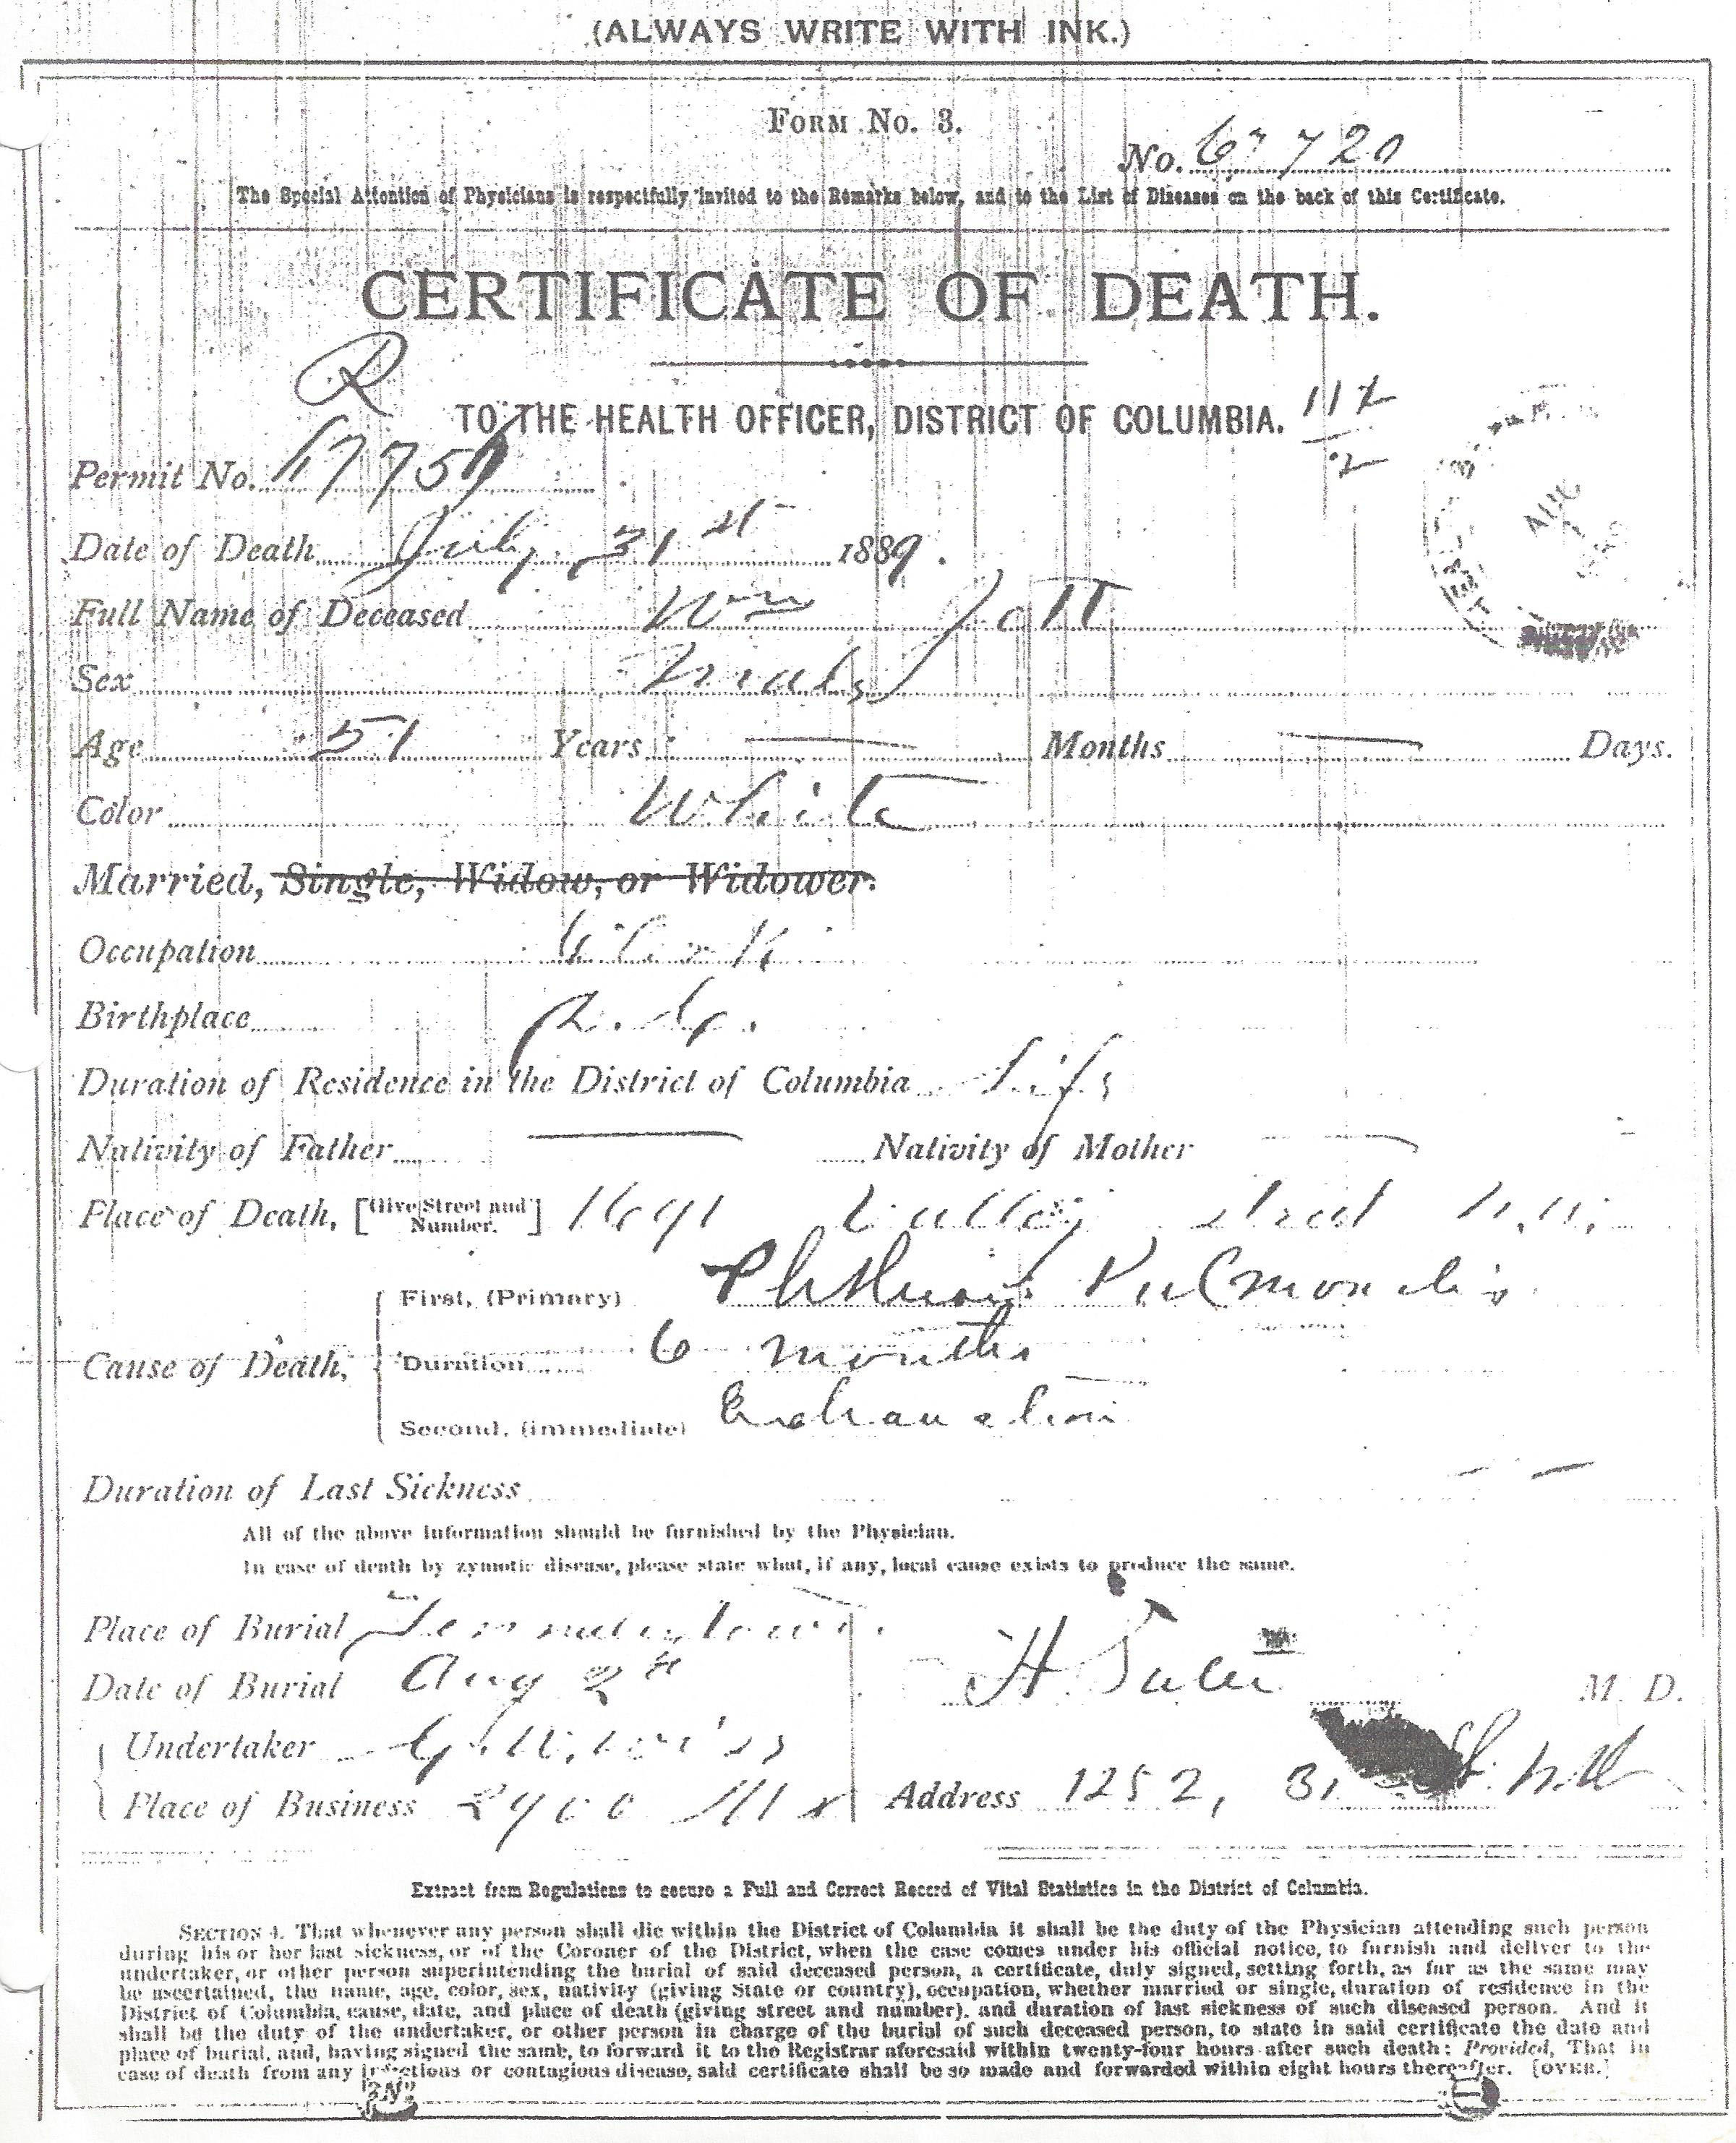 (ALWAYS WRITE WITH INK.)
FORM No. 3.
No. 67720
The Special Attention of Physicians is respectfully invited to the Remarks below, and to the List of Diseases on the back of this Certificate.
CERTIFICATE OF DEATH.
R
TO THE HEALTH OFFICER, DISTRICT OF COLUMBIA.
112
2
Permit No.
Date of Death July 31st 1889.
AUG 1
Full Name of Deceased Wm Jott
Sex Male
Age 51 Years — Months — Days.
Color White
Married, Single, Widow, or Widower.
Occupation Clerk
Birthplace D.C.
Duration of Residence in the District of Columbia Life
Nativity of Father — Nativity of Mother —
Place of Death, [Give Street and Number.] 1691 Valley street N.W.
First, (Primary) Phthisis Pulmonalis
Cause of Death, Duration 6 months
Second, (immediate) Exhaustion
Duration of Last Sickness
All of the above information should be furnished by the Physician.
In case of death by zymotic disease, please state what, if any, local cause exists to produce the same.
Place of Burial Tennallytown
Date of Burial Aug 2d
H. M. D.
Undertaker G. W. Wise
Place of Business 2900 M St
Address 1252, 31 St. N.W.
Extract from Regulations to secure a Full and Correct Record of Vital Statistics in the District of Columbia.
SECTION 4. That whenever any person shall die within the District of Columbia it shall be the duty of the Physician attending such person
during his or her last sickness, or of the Coroner of the District, when the case comes under his official notice, to furnish and deliver to the
undertaker, or other person superintending the burial of said deceased person, a certificate, duly signed, setting forth, as far as the same may
be ascertained, the name, age, color, sex, nativity (giving State or country), occupation, whether married or single, duration of residence in the
District of Columbia, cause, date, and place of death (giving street and number), and duration of last sickness of such diseased person. And it
shall be the duty of the undertaker, or other person in charge of the burial of such deceased person, to state in said certificate the date and
place of burial, and, having signed the same, to forward it to the Registrar aforesaid within twenty-four hours after such death: Provided, That in
case of death from any infectious or contagious disease, said certificate shall be so made and forwarded within eight hours thereafter. [OVER.]